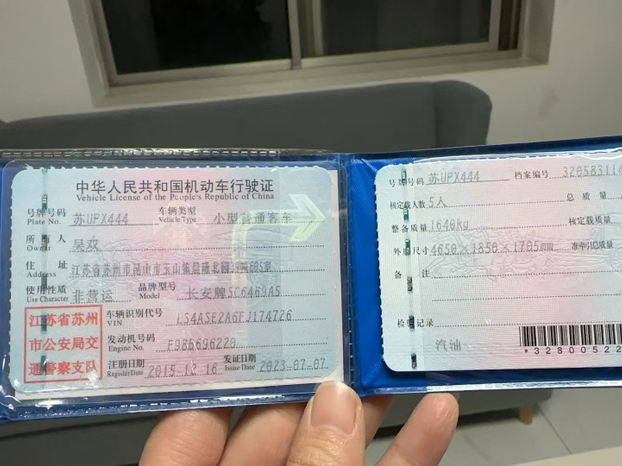 中华人民共和国机动车行驶证
Vehicle License of the People's Republic of China
号牌号码 苏UPX444 车辆类型 小型普通客车
Plate No. Vehicle Type
所有人 吴双
Owner
住址 江苏省苏州市昆山市玉山镇
Address
使用性质 非营运 品牌型号 长安牌SC6469A5
Use Character Model
江苏省苏州
市公安局交
通警察支队
车辆识别代号 LS4ASE2A6FJ174726
VIN
发动机号码 F98S696220
Engine No.
注册日期 2015-12-16 发证日期 2023-07-07
Register Date Issue Date
号牌号码 苏UPX444 档案编号 320583114
核定载人数 5人 总质量
整备质量 1640kg 核定载质量
外廓尺寸 4650×1850×1705mm 准牵引总质量
备注
检验记录
汽油
*32800522